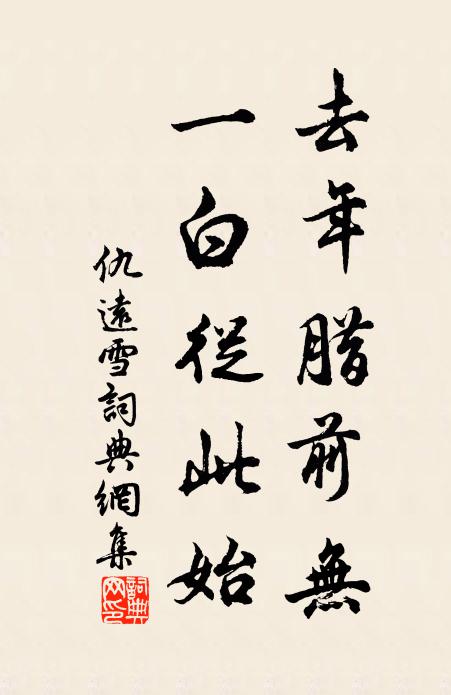 去年腊前無
一白從此始
仇遠雪詞典網集
詞典网印